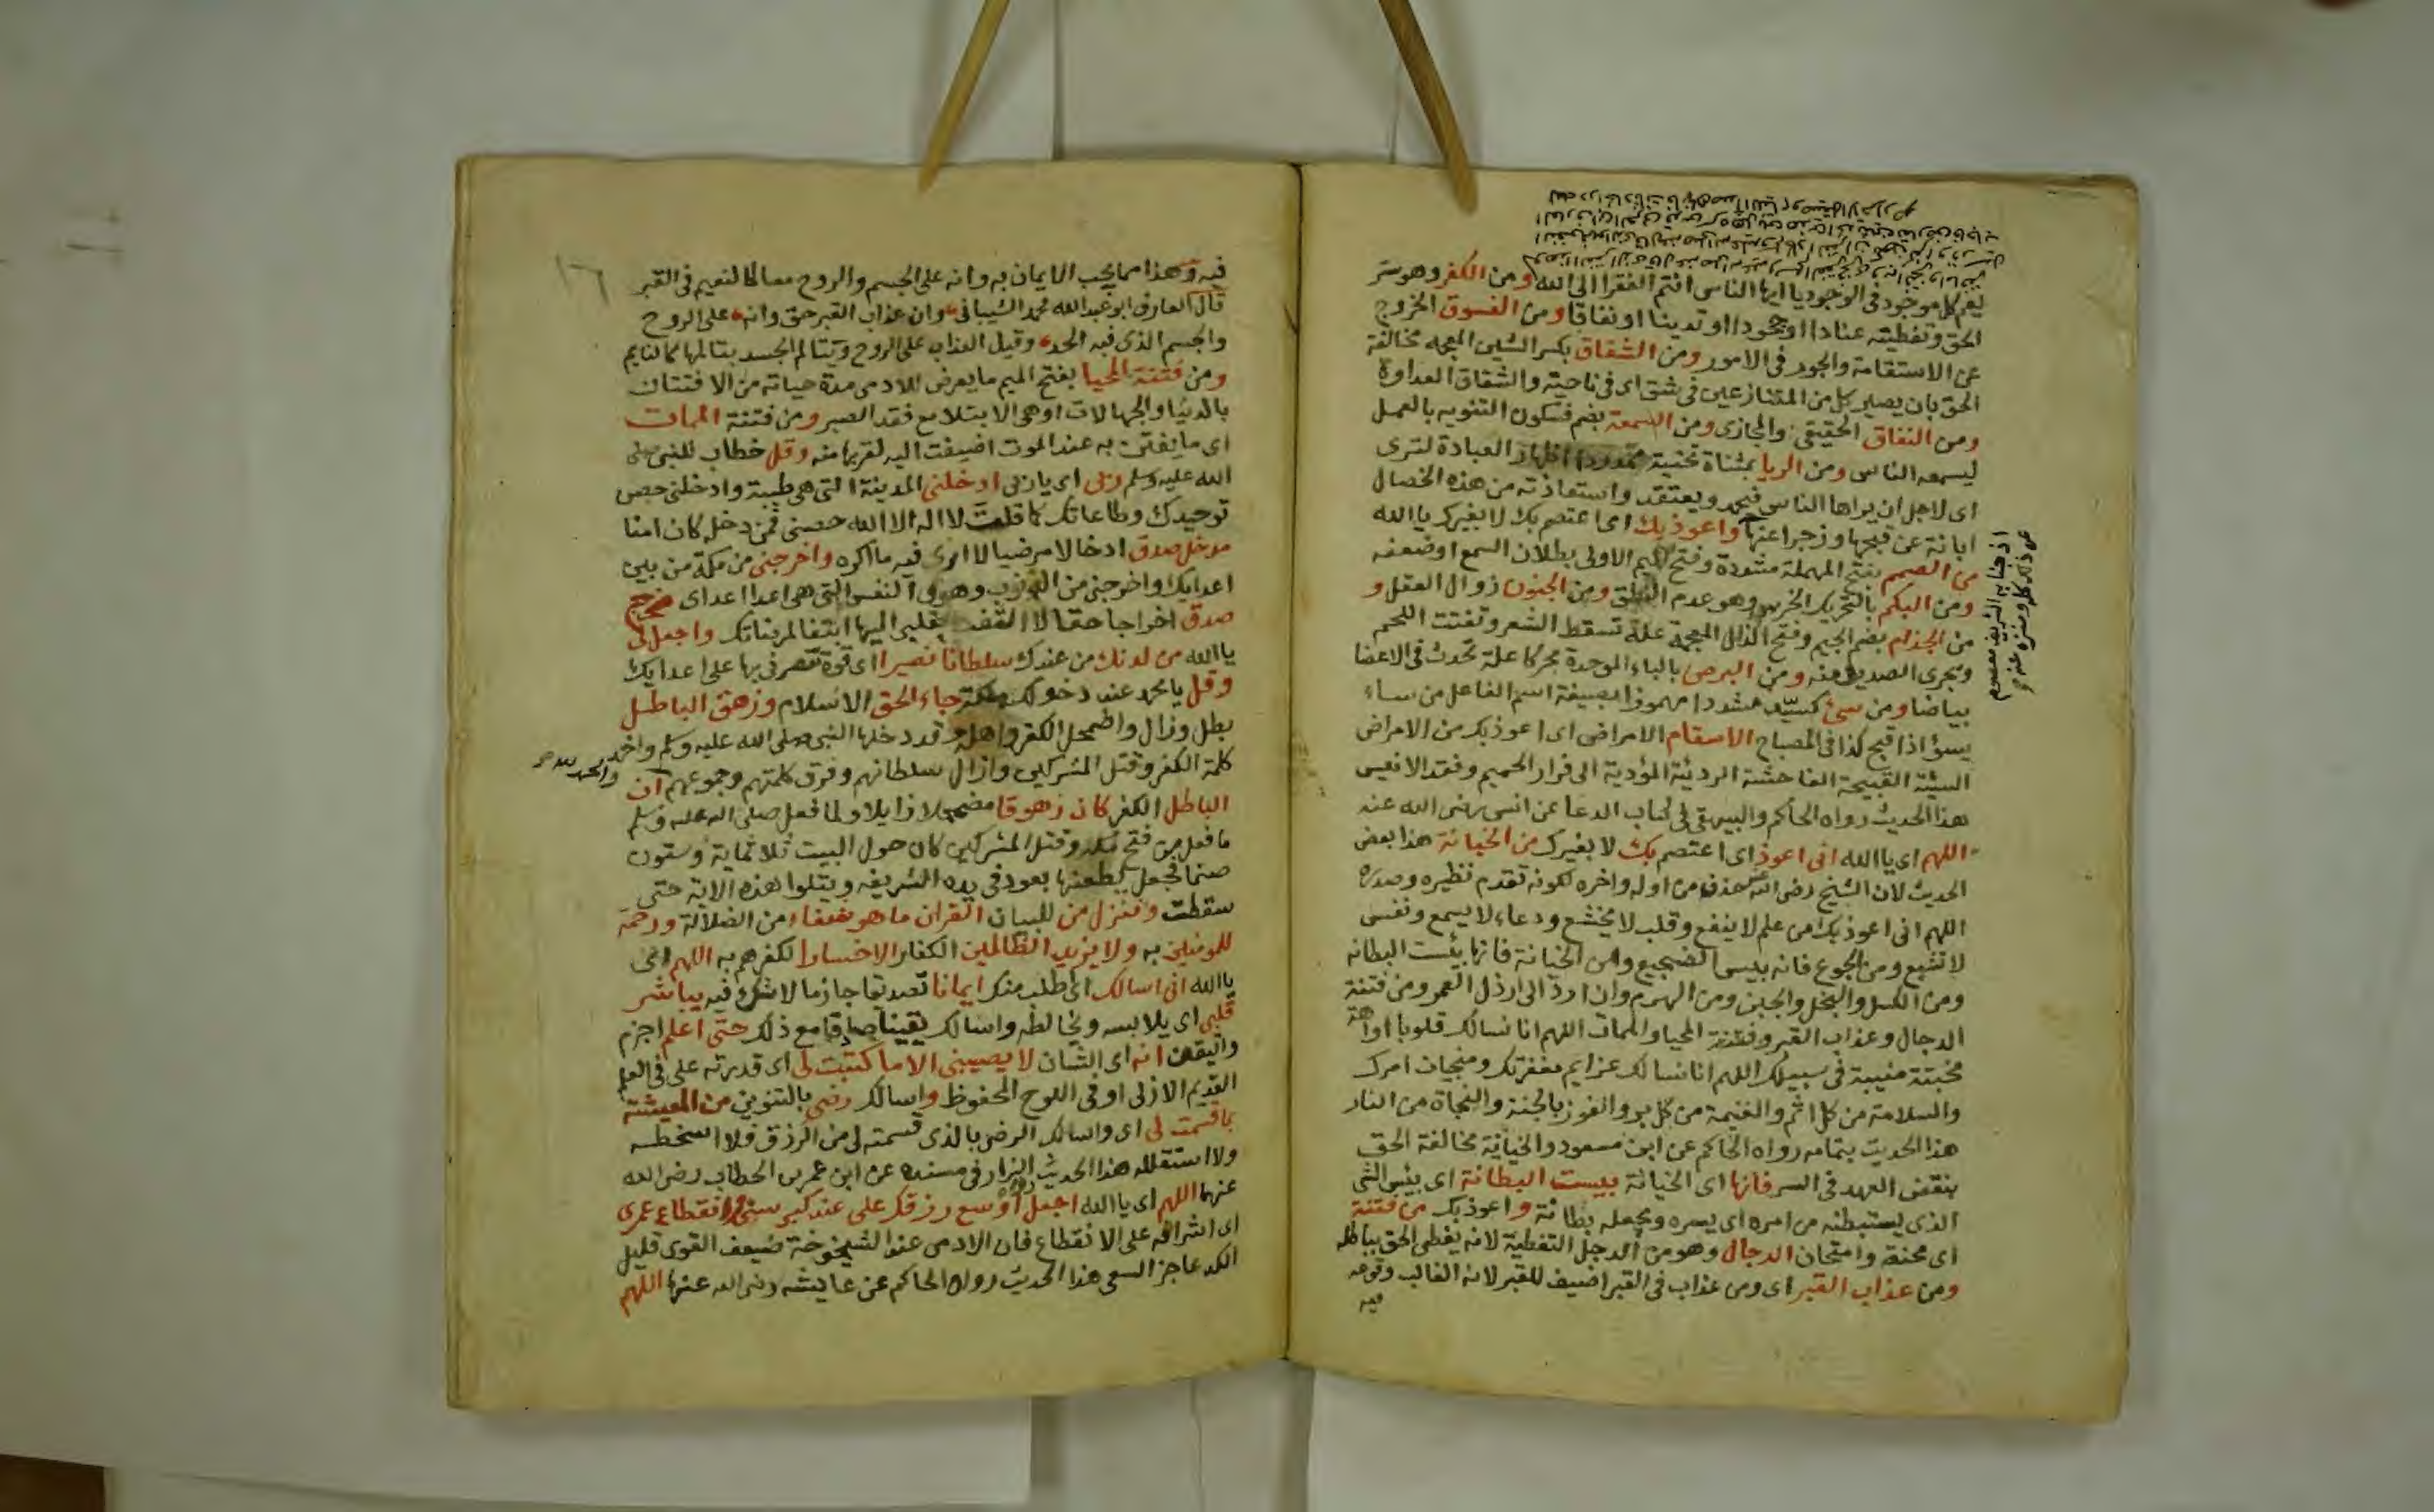 يعم كل موجود في الوجود يا ايها الناس انتم الفقرا الى الله ومن الكفر وهو ستر
الحق وتغطيته عنادا او جحودا او تدينا او نفاقا ومن الفسوق الخروج
عن الاستقامة والجور في الامور ومن الشقاق بكسر الشين المعجمه مخالفة
الحق بان يصير كل من المتنازعين في شق اى في ناحية والشقاق العداوة
ومن النفاق الحقيقي والمجازى ومن السمعة بضم فسكون التنويه بالعمل
ليسمعه الناس ومن الريا بمثناة تحتية ممدودا اظهار العبادة لترى
اى لاجل ان يراها الناس فيحمد ويعتقد واستعاذته من هذه الخصال
ابانة عن قبحها وزجرا عنها واعوذ بك اى اعتصم بك لا بغيرك يا الله
من الصمم بفتح المهملة مشددة وفتح الميم الاولى بطلان السمع او ضعفه
ومن البكم بالتحريك الخرس وهو عدم النطق ومن الجنون زوال العقل و
من الجذام بضم الجيم وفتح الذال المعجمة علة تسقط الشعر وتفتت اللحم
وتجرى الصديد منه ومن البرص بالباء الموحدة محركا علة تحدث في الاعضا
بياضا ومن سئ كسيّد مشددا مهموزا بصيغة اسم الفاعل من ساء
يسؤ اذا قبح كذا في المصباح الاسقام الامراض اى اعوذ بك من الامراض
السيئة القبيحة الفاحشة الردئية المؤدية الى فرار الحميم وفقد الانيس
هذا الحديث رواه الحاكم والبيهقي في كتاب الدعا عن انس رضى الله عنه
اللهم اى يا الله انى اعوذ اى اعتصم بك لا بغيرك من الخيانة هذا بعض
الحديث لان الشيخ رضى الله عنه حذف من اوله واخره لكونه تقدم نظيره وصدره
اللهم انى اعوذ بك من علم لا ينفع وقلب لا يخشع ودعاء لا يسمع ونفس
لا تشبع ومن الجوع فانه بيس الضجيع ومن الخيانة فانها بئست البطانه
ومن الكسل والبخل والجبن ومن الهرم وان ارد الى ارذل العمر ومن فتنة
الدجال وعذاب القبر وفتنة المحيا والممات اللهم انا نسالك قلوبا اواهة
مخبتة منيبة في سبيلك اللهم انا نسالك عزايم مغفرتك ومنجيات امرك
والسلامة من كل اثم والغنيمة من كل بر والفوز بالجنة والنجاة من النار
هذا الحديث بتمامه رواه الحاكم عن ابن مسعود والخيانة مخالفة الحق
بنقض العهد في السر فانها اى الخيانة بيست البطانة اى بئس الشى
الذى يستبطنه من امره اى يسره ويجعله بطانة واعوذ بك من فتنة
اى محنة وامتحان الدجال وهو من الدجل التغطية لانه يغطى الحق بباطله
ومن عذاب القبر اى ومن عذاب في القبر اضيف للقبر لانه الغالب وقوعه
فيه
١٦
فيه وهذا مما يجب الايمان به وانه على الجسم والروح معا كالنعيم في القبر
قال العارف ابو عبد الله محمد الشيبانى وان عذاب القبر حق وانه على الروح
والجسم الذى فيه الحد وقيل العذاب على الروح ويتالم الجسد بتالمها كالنايم
ومن فتنة المحيا بفتح الميم ما يعرض للادمى مدة حياته من الافتتان
بالدنيا والجهالات او هى الابتلا مع فقد الصبر ومن فتنة الممات
اى ما يفتن به عند الموت اضيفت اليه لقربها منه وقل خطاب للنبى صلى
الله عليه وسلم ربى اى يا ربى ادخلنى المدينة التى هى طيبة وادخلنى حصن
توحيدك وطاعاتك كما قلت لا اله الا الله حصنى فمن دخل كان امنا
مدخل صدق ادخالا مرضيا لا ارى فيه ما اكره واخرجنى من مكة من بين
اعدايك واخرجنى من الذنوب وهوى النفس التى هى اعدا اعداى مخرج
صدق اخراجا حقا لا التفت بقلبى اليها ابتغا لمرضاتك واجعل لى
يا الله من لدنك من عندك سلطانا نصيرا اى قوة تنصرنى بها على اعدايك
وقل يا محمد عند دخولك مكة جاء الحق الاسلام وزهق الباطل
بطل وزال واضمحل الكفر واهله وقد دخلها النبى صلى الله عليه وسلم واخمد
كلمة الكفر وقتل المشركين وازال سلطانهم وفرق كلمتهم وجموعهم ان
والحمد لله
الباطل الكفر كان زهوقا مضمحلا زايلا ولما فعل صلى الله عليه وسلم
ما فعل من فتح مكة وقتل المشركين كان حول البيت ثلاثماية وستون
صنما فجعل يطعنها بعود في يده الشريفه ويتلوا هذه الاية حتى
سقطت وننزل من للبيان القران ما هو شفاء من الضلالة ورحمة
للمومنين به ولا يزيد الظالمين الكفار الا خسارا لكفرهم به اللهم اى
يا الله انى اسالك اى اطلب منك ايمانا تصديقا جازما لا شك فيه يباشر
قلبى اى يلابسه ويخالطه واسالك يقينا صادقا مع ذلك حتى اعلم اجزم
واتيقن انه اى الشان لا يصيبنى الا ما كتبت لى اى قدرته على في العلم
القديم الازلى او في اللوح المحفوظ واسالك رضى بالتنوين من المعيشة
بما قسمت لى اى واسالك الرضى بالذى قسمته لى من الرزق فلا اسخطه
ولا استقلله هذا الحديث رواه البزار في مسنده عن ابن عمر بن الخطاب رضى الله
عنهما اللهم اى يا الله اجعل اوسع رزقك على عند كبر سنى وانقطاع عمرى
اى اشرافه على الانقطاع فان الادمى عند الشيخوخة ضعيف القوى قليل
الكد عاجز السعى هذا الحديث رواه الحاكم عن عايشه رضى الله عنها اللهم